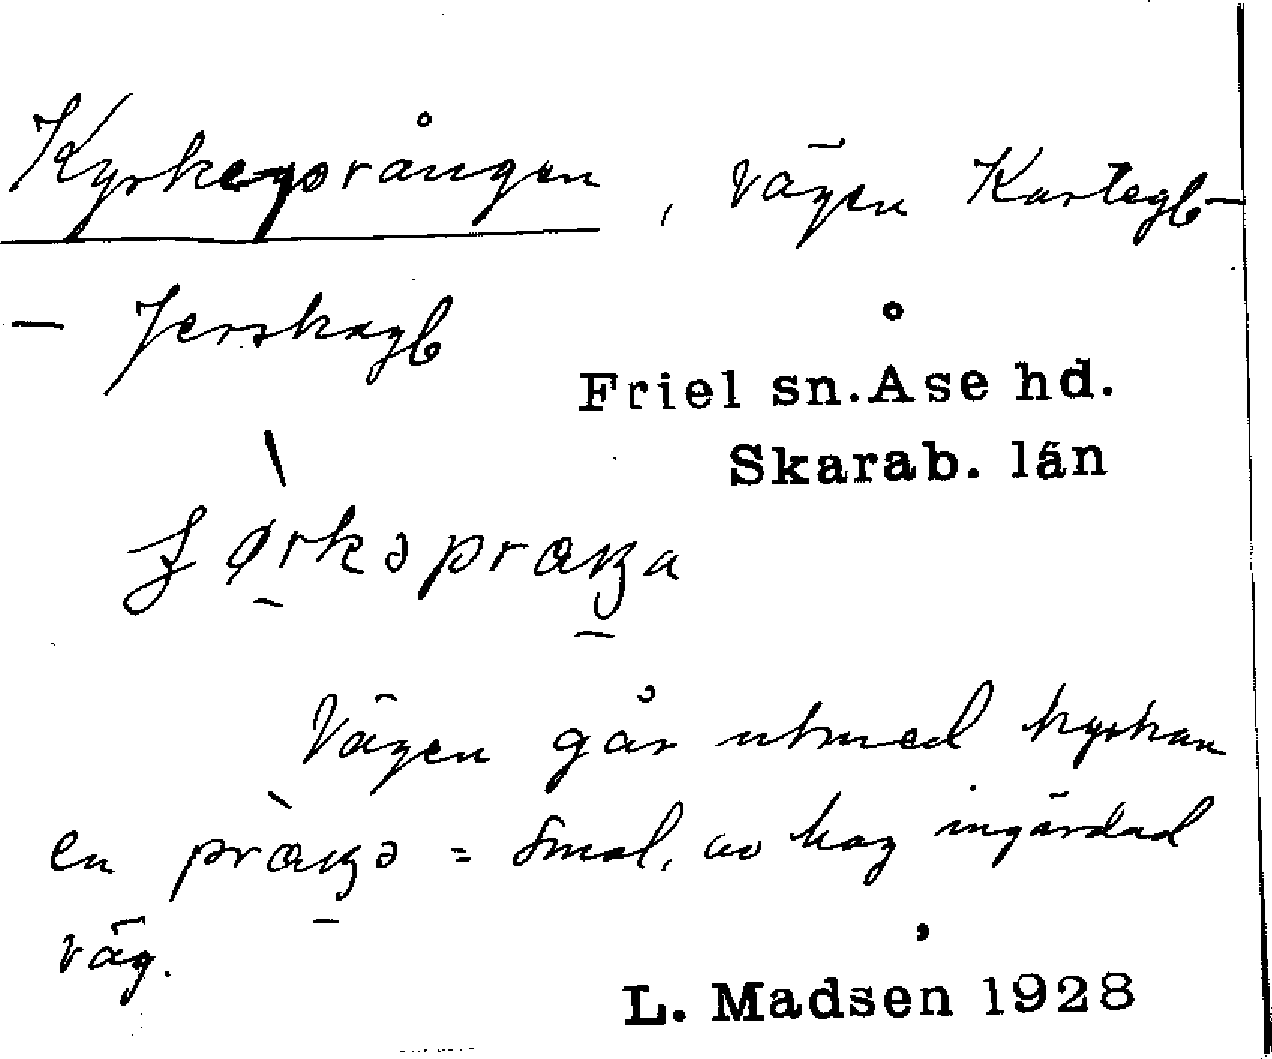 Kyrkeprången, vägen Kartegb-
- Jerskagb
Friel sn. Åse hd.
Skarab. län
ʃørkəpraŋa
Vägen går utmed kyrkan
en praŋə = smal, av hag ingärdad
väg.
L. Madsen 1928